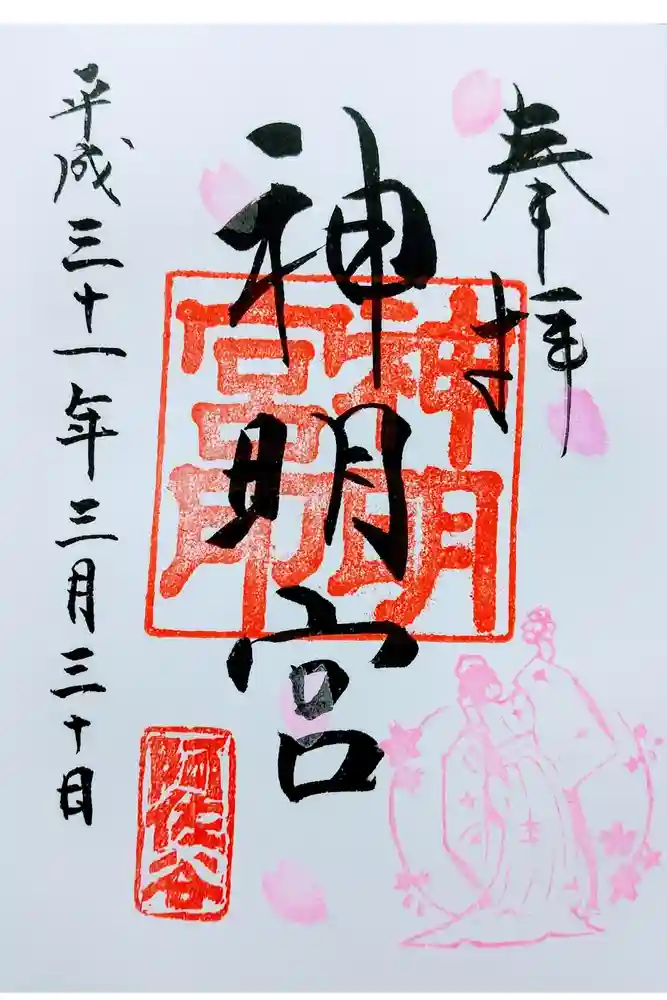 奉拝
神明宮
神明
宮印
平成三十一年三月三十日
阿佐谷